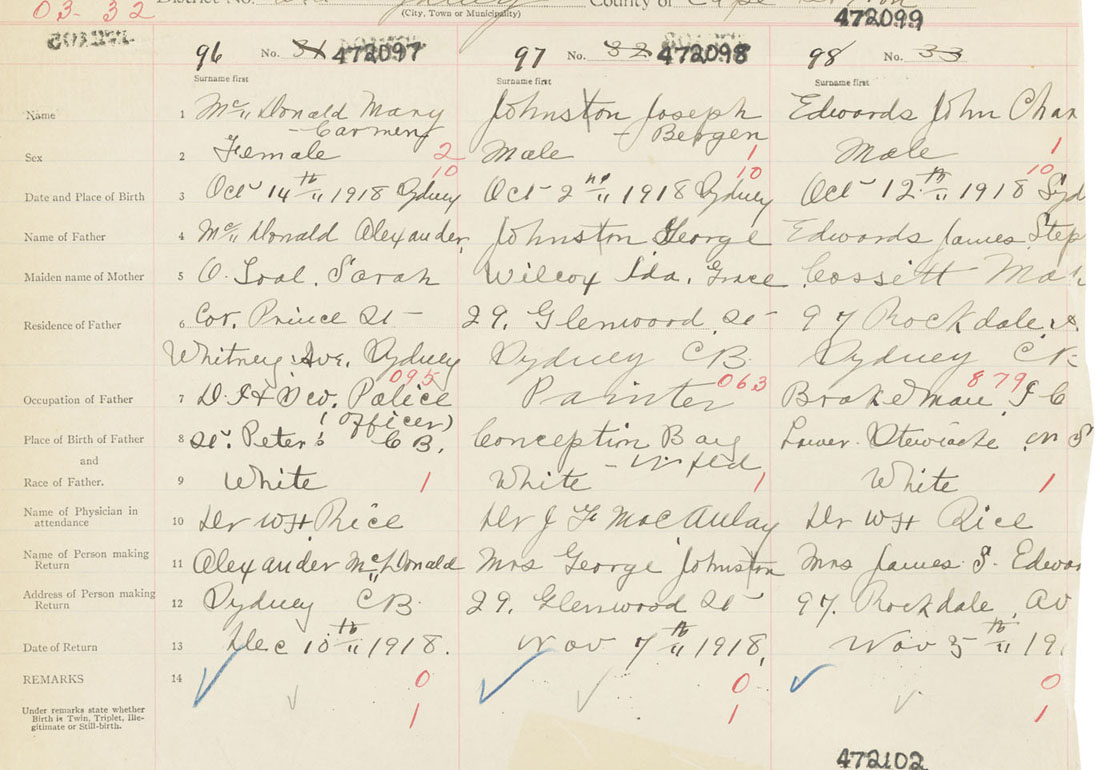 03-32
Sydney County of Cape Breton
(City, Town or Municipality)
472099
96 No. 31 472097 97 No. 32 472098 98 No. 33
Surname first Surname first Surname first
Name 1 Mc Donald Mary Johnston Joseph Edwards John Char
-Carmen -Bergen
Sex 2 Female 2 Male 1 Male 1
10 10 10
Date and Place of Birth 3 Oct 14th 1918 Sydney Oct 2nd 1918 Sydney Oct 12th 1918 Syd
Name of Father 4 Mc Donald Alexander Johnston George Edwards James Step
Maiden name of Mother 5 O. Toal. Sarah Wilcox Ida. Grace Cossitt Ma
Residence of Father 6 Cor. Prince St - 29. Glenwood St - 97 Rockdale
Whitney Ave. Sydney Sydney CB Sydney C
095 063 879
Occupation of Father 7 Police Painter Brakeman
(Officer)
Place of Birth of Father 8 St. Peter's C B. Conception Bay Lower Stewiacke N S
and - Nfld
Race of Father. 9 White 1 White 1 White 1
Name of Physician in
attendance 10 Dr WH Rice Dr J F MacAulay Dr WH Rice
Name of Person making
Return 11 Alexander Mc Donald Mrs George Johnston Mrs James S. Edwar
Address of Person making
Return 12 Sydney CB 29. Glenwood St 97. Rockdale Av
Date of Return 13 Dec 10th 1918. Nov 7th 1918. Nov 5th 19
REMARKS 14 0 0 0
Under remarks state whether
Birth is Twin, Triplet, Ille-
gitimate or Still-birth. 1 1 1
472102